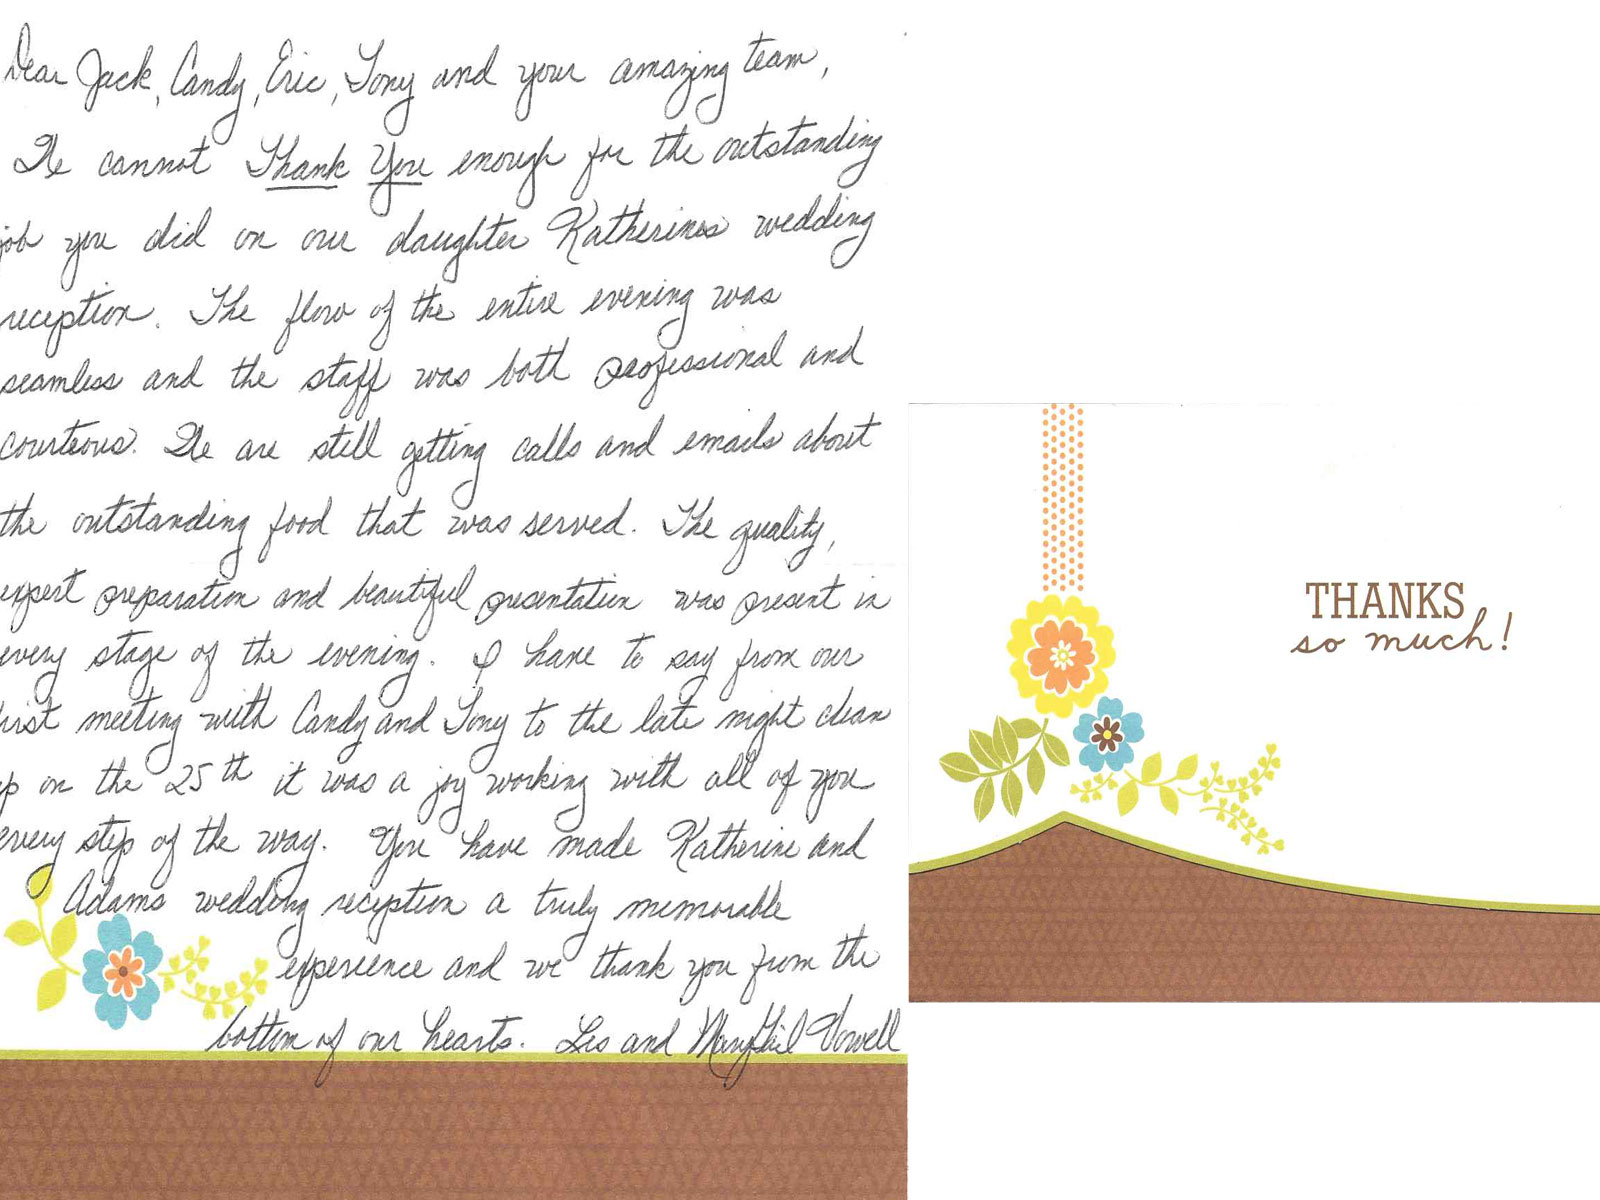 Dear Jack, Candy, Eric, Tony and your amazing team,
We cannot Thank You enough for the outstanding
job you did on our daughter Katherines wedding
reception. The flow of the entire evening was
seamless and the staff was both professional and
courteous. We are still getting calls and emails about
the outstanding food that was served. The quality,
expert preparation and beautiful presentation was present in
every stage of the evening. I have to say from our
first meeting with Candy and Tony to the late night clean
up on the 25th it was a joy working with all of you
every step of the way. You have made Katherine and
Adams wedding reception a truly memorable
experience and we thank you from the
bottom of our hearts. Les and MaryGail Vowell
THANKS
so much!